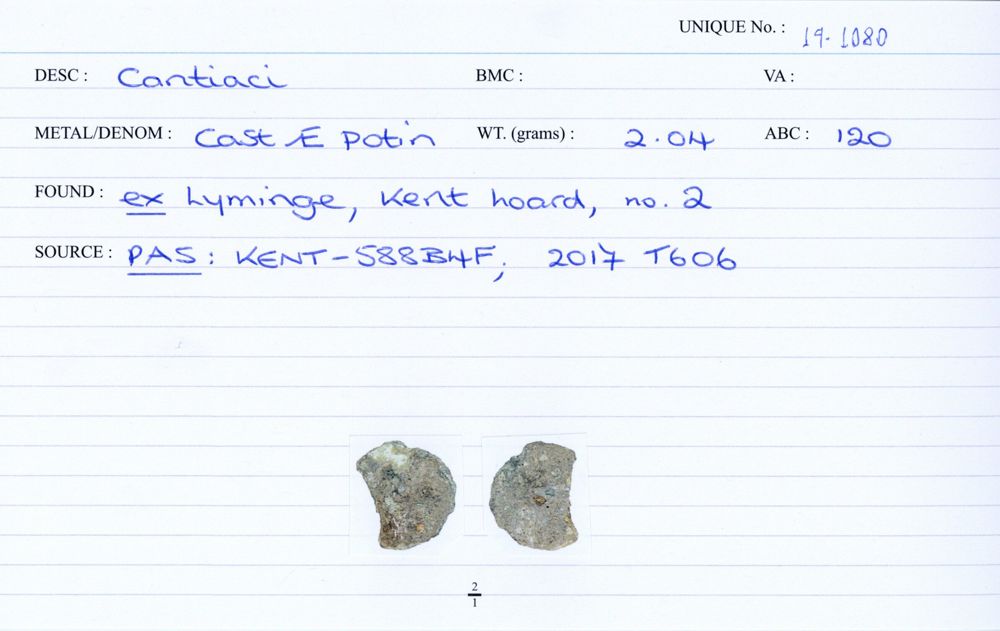 UNIQUE No. : 19.1080
DESC : Cantiaci BMC : VA :
METAL/DENOM : Cast Æ potin WT. (grams) : 2.04 ABC : 120
FOUND : ex Lyminge, Kent hoard, no. 2
SOURCE : PAS: KENT-588B4F; 2017 T606
2
1